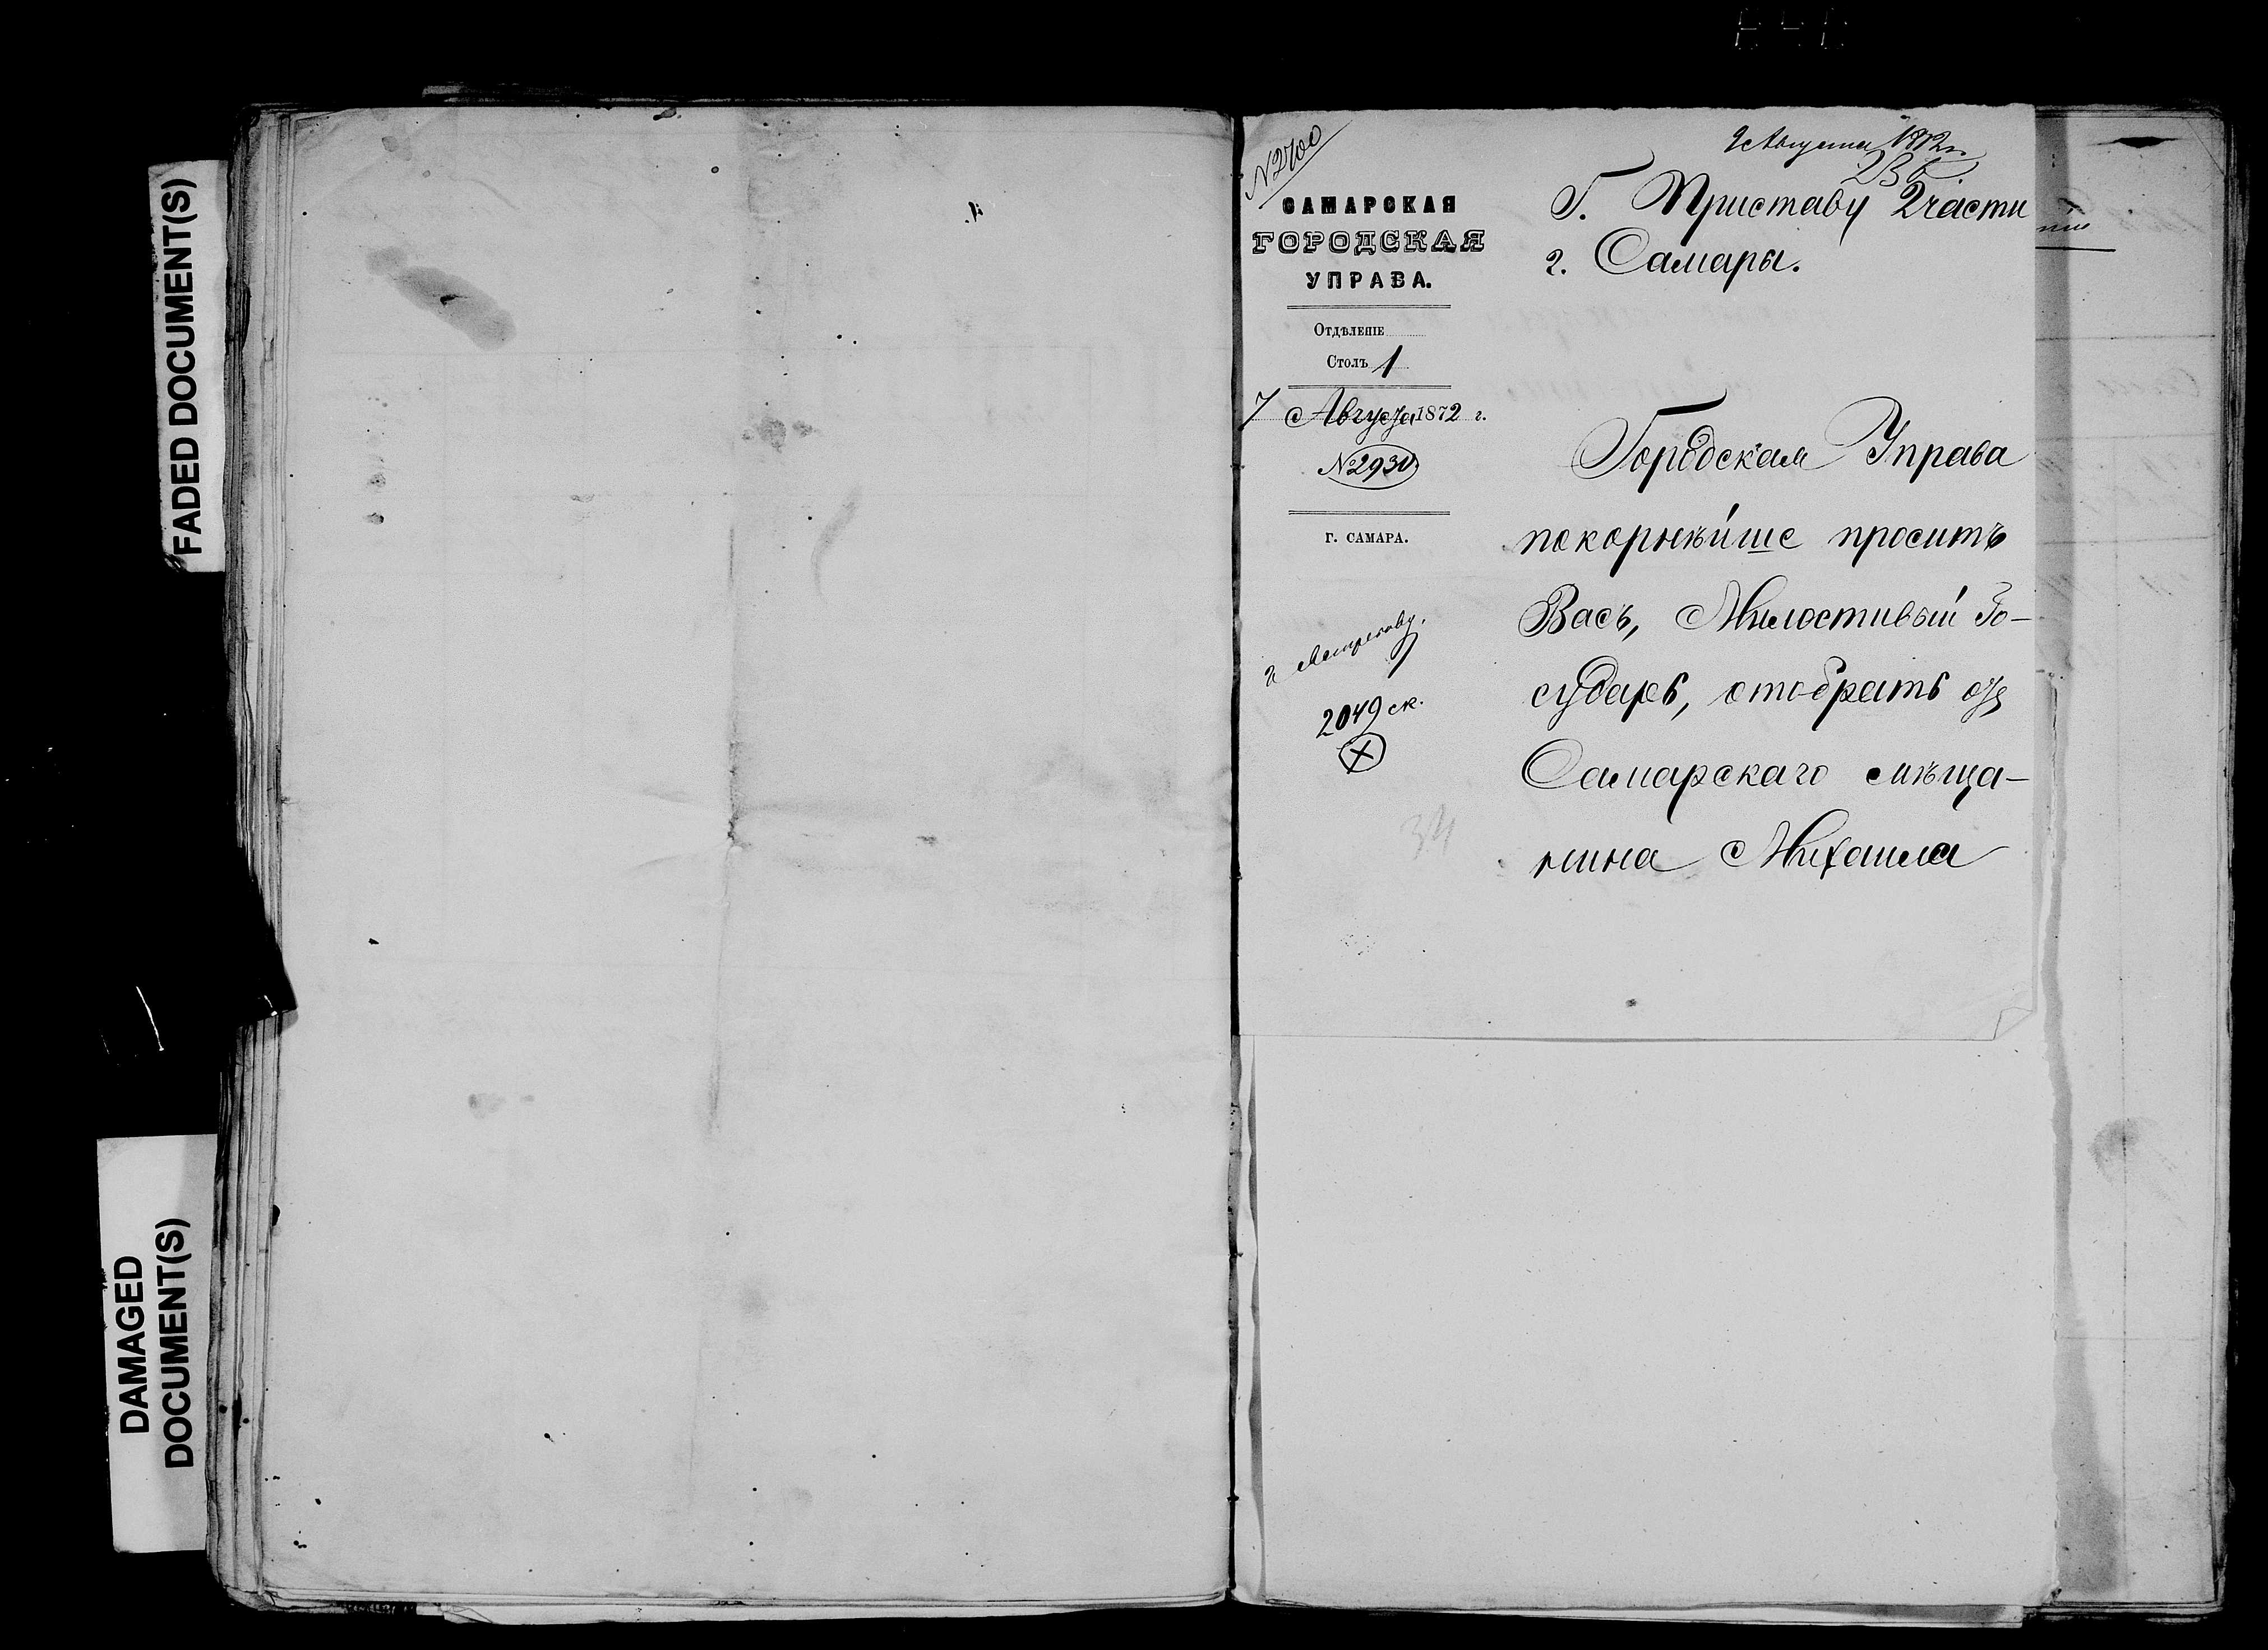 FADED DOCUMENT(S)
DAMAGED
DOCUMENT(S)
N 2700
САМАРСКАЯ
ГОРОДСКАЯ
УПРАВА.
Отдѣленіе
Столъ 1
7 Августа 1872 г.
№ 2930
Г. САМАРА.
2049 ск.
34
9 Августа 1872 г.
236
Г. Приставу 2 части
г. Самары.
Городская Управа
покорнѣйше проситъ
Васъ, Милостивый Го-
сударь, отобрать отъ
Самарскаго мѣща-
нина Михаила